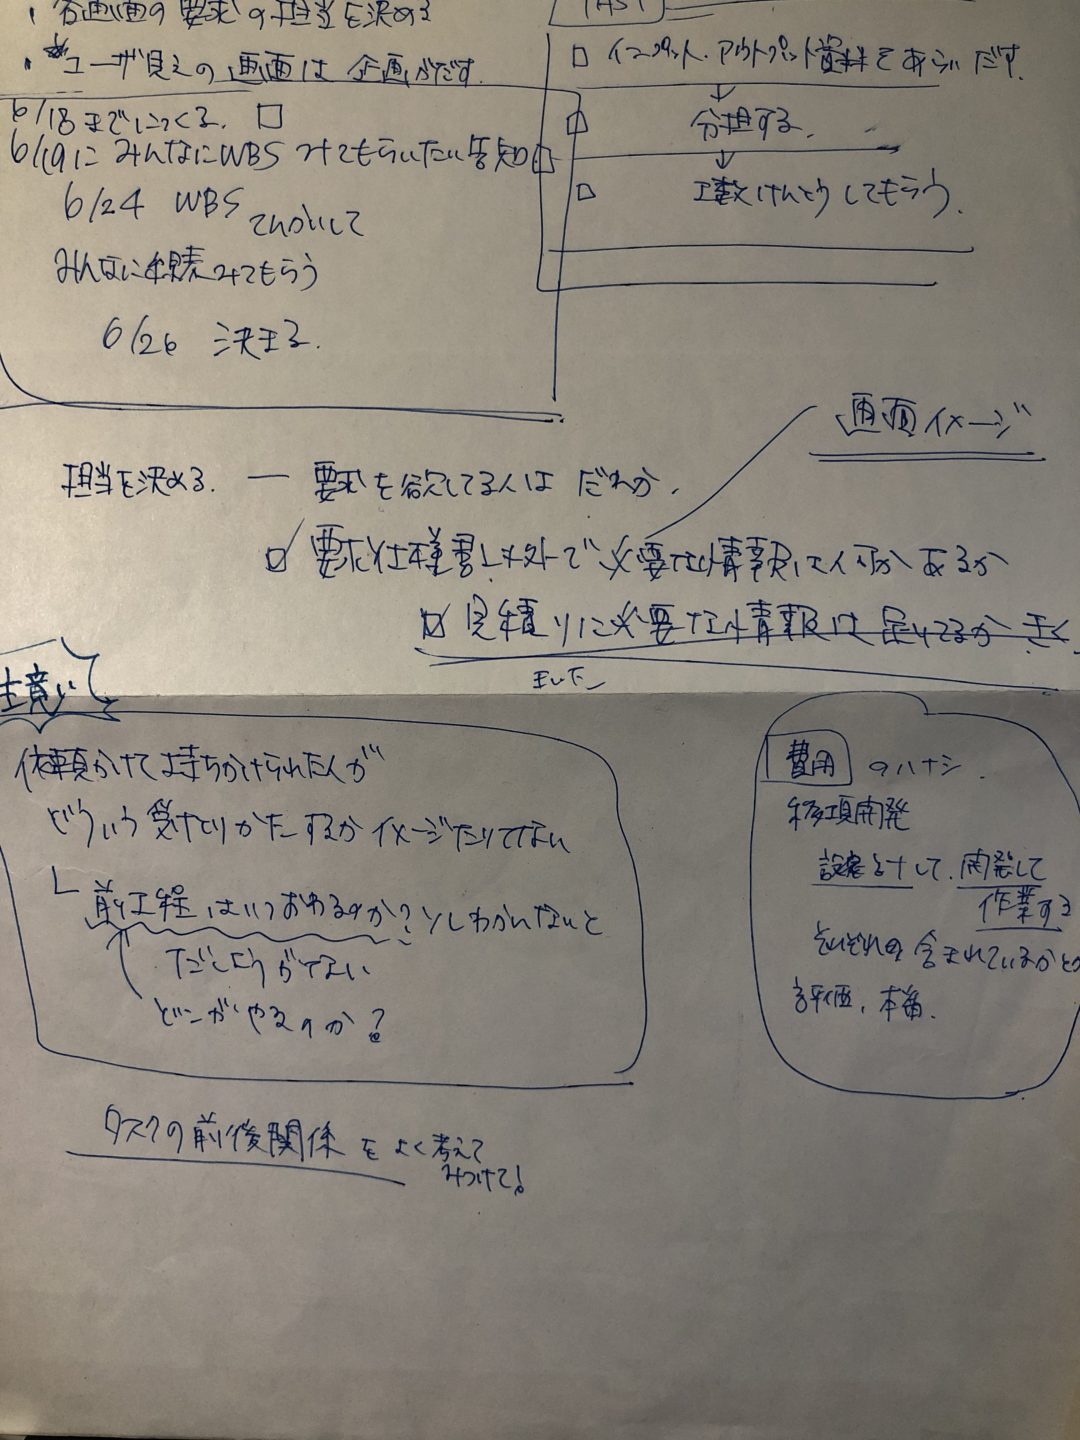 ・各画面の要求の担当を決める
・ユーザ見えの画面は企画がだす.
6/18までにつくる.
6/19にみんなにWBSみてもらいたい告知
6/24 WBS
てんかいして
みんなに線表みてもらう
6/26 決まる.
インプット・アウトプット資料をあらいだす.
↓
分担する.
↓
工数けんとうしてもらう.
画面イメージ
担当を決める. ― 要求を欲してる人はだれか.
要求仕様書以外で必要な情報は何かあるか
見積りに必要な情報は足りてるかきく
きいた
注意
依頼かけて持ちかけられた人が
どういう受けとりかたするかイメージたりてない
前工程はいつおわるのか?ソレわかんないと
だしようがない
どこがやるのか?
費用 のハナシ.
移項開発
設計して.開発して
作業する
それぞれの含まれているかとか
評価、本番.
タスクの前後関係をよく考えて
みつけて!